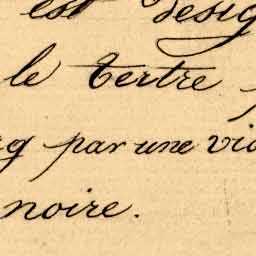 est desig
le tertre
rg par une vie
noire.